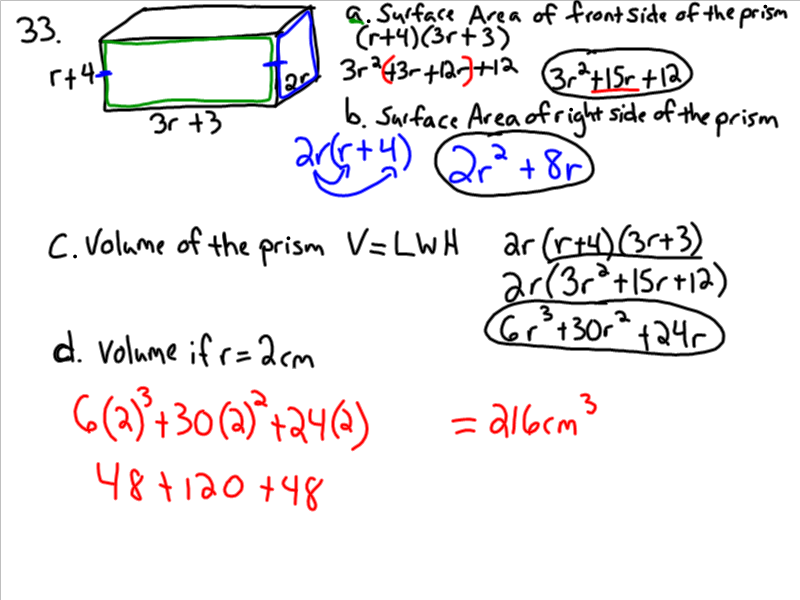 33.
a. Surface Area of front side of the prism
(r+4)(3r+3)
r+4
2r
3r²(+3r+12r)+12
3r²+15r+12
3r+3
b. Surface Area of right side of the prism
2r(r+4)
2r²+8r
C. Volume of the prism V=LWH
2r(r+4)(3r+3)
2r(3r²+15r+12)
6r³+30r²+24r
d. Volume if r=2cm
6(2)³+30(2)²+24(2) =216cm³
48+120+48